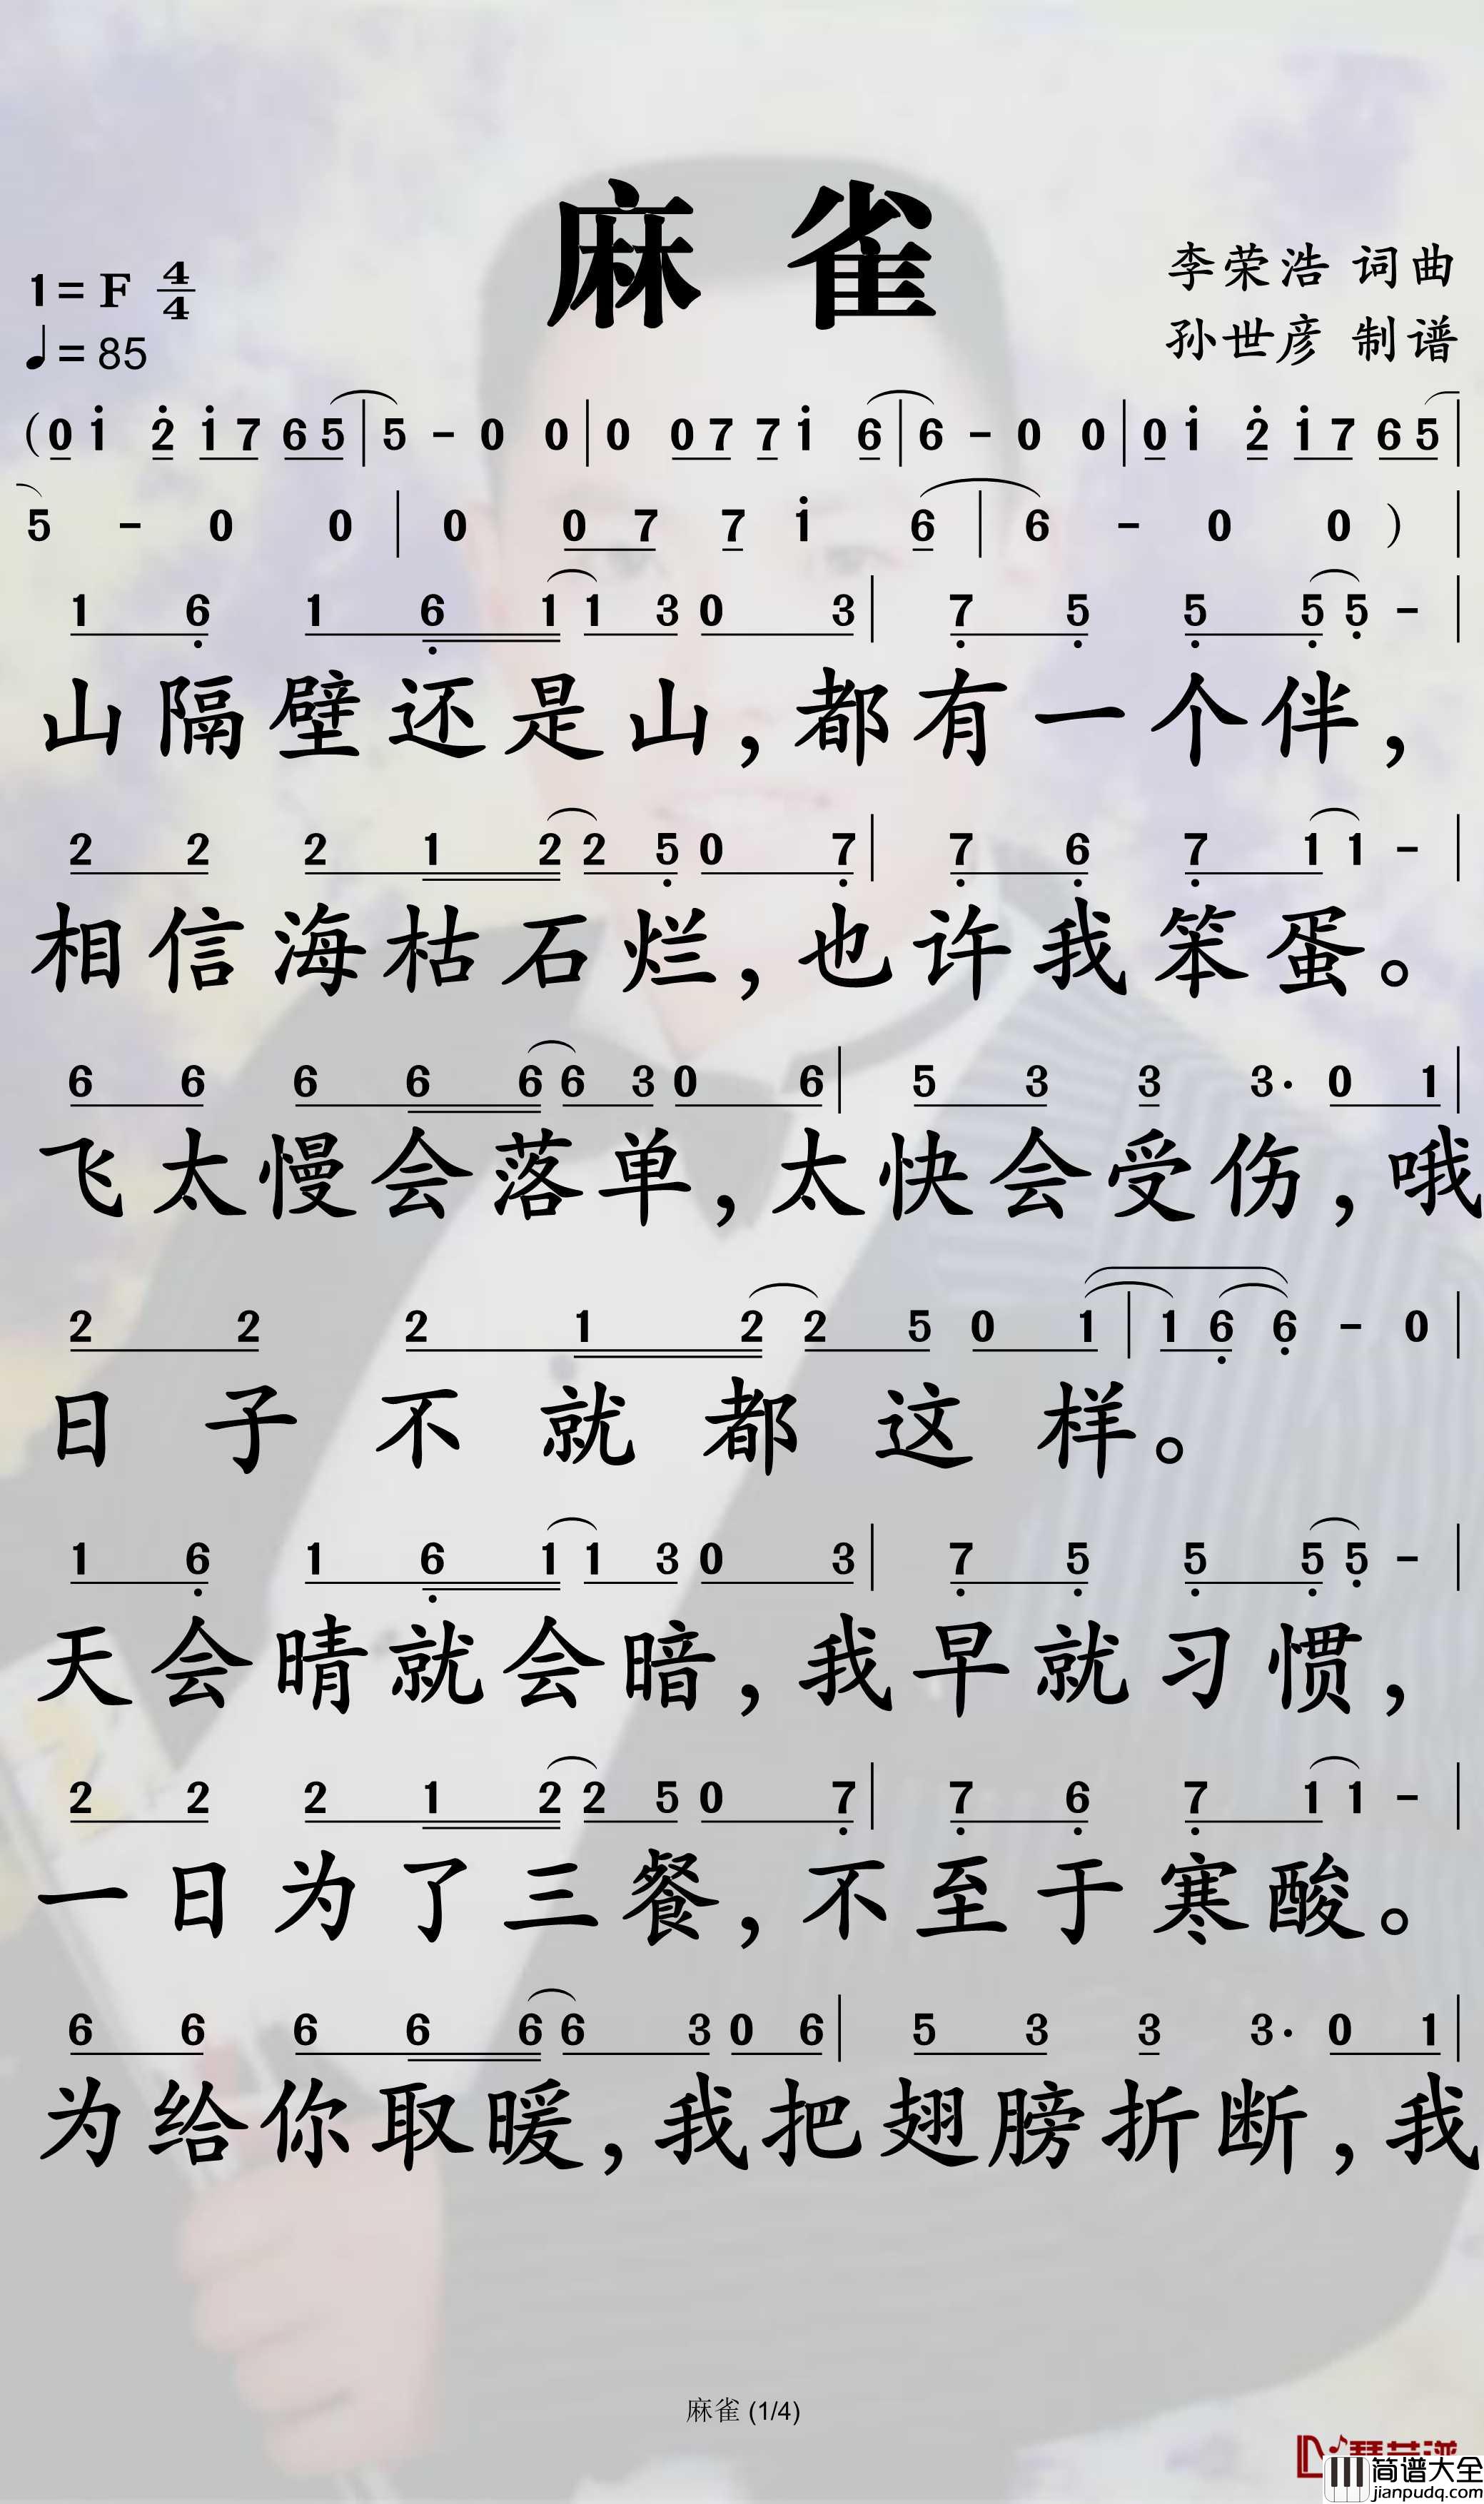 麻雀
李荣浩 词曲
1=F 4/4
孙世彦 制谱
♩=85
(0 1̇ 2̇ 1̇ 7 6 5 | 5 - 0 0 | 0 0 7 7 1̇ 6 | 6 - 0 0 | 0 1̇ 2̇ 1̇ 7 6 5 |
5 - 0 0 | 0 0 7 7 1̇ 6 | 6 - 0 0 ) |
1 6̣ 1 6̣ 1 1 3 0 3 | 7̣ 5̣ 5̣ 5̣ 5̣ - |
山隔壁还是山，都有一个伴，
2 2 2 1 2 2 5̣ 0 7̣ | 7̣ 6̣ 7̣ 1 1 - |
相信海枯石烂，也许我笨蛋。
6 6 6 6 6 6 3 0 6 | 5 3 3 3· 0 1 |
飞太慢会落单，太快会受伤，哦
2 2 2 1 2 2 5 0 1 | 1 6̣ 6̣ - 0 |
日子不就都这样。
1 6̣ 1 6̣ 1 1 3 0 3 | 7̣ 5̣ 5̣ 5̣ 5̣ - |
天会晴就会暗，我早就习惯，
2 2 2 1 2 2 5 0 7̣ | 7̣ 6̣ 7̣ 1 1 - |
一日为了三餐，不至于寒酸。
6 6 6 6 6 6 3 0 6 | 5 3 3 3· 0 1 |
为给你取暖，我把翅膀折断，我
麻雀 (1/4)
简谱大全
jianpudq.com